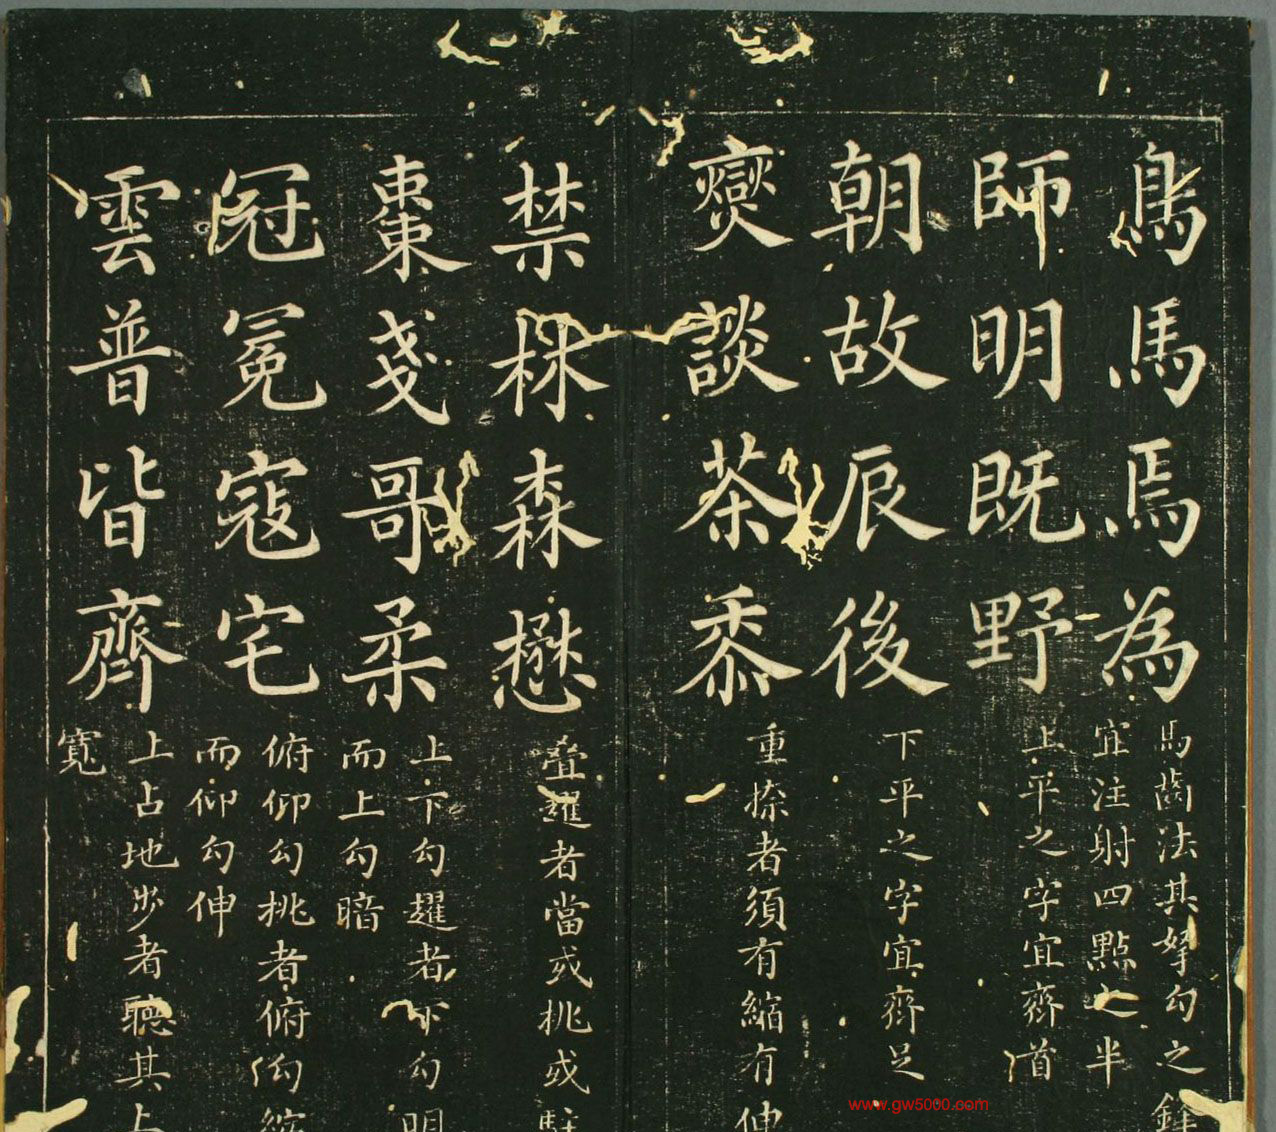 鳥馬焉為
馬齒法其拏勾之鋒
宜注射四點之半
師明既野
上平之字宜齊首
朝故辰後
下平之字宜齊足
燮談茶黍
重捺者須有縮有伸
禁林森懋
疊趯者當或挑或駐
棗戔哥柔
上下勾趯者下勾明
而上勾暗
冠冕寇宅
俯仰勾挑者俯勾縮
而仰勾伸
雲普皆齊
上占地步者聽其上
寬
www.gw5000.com